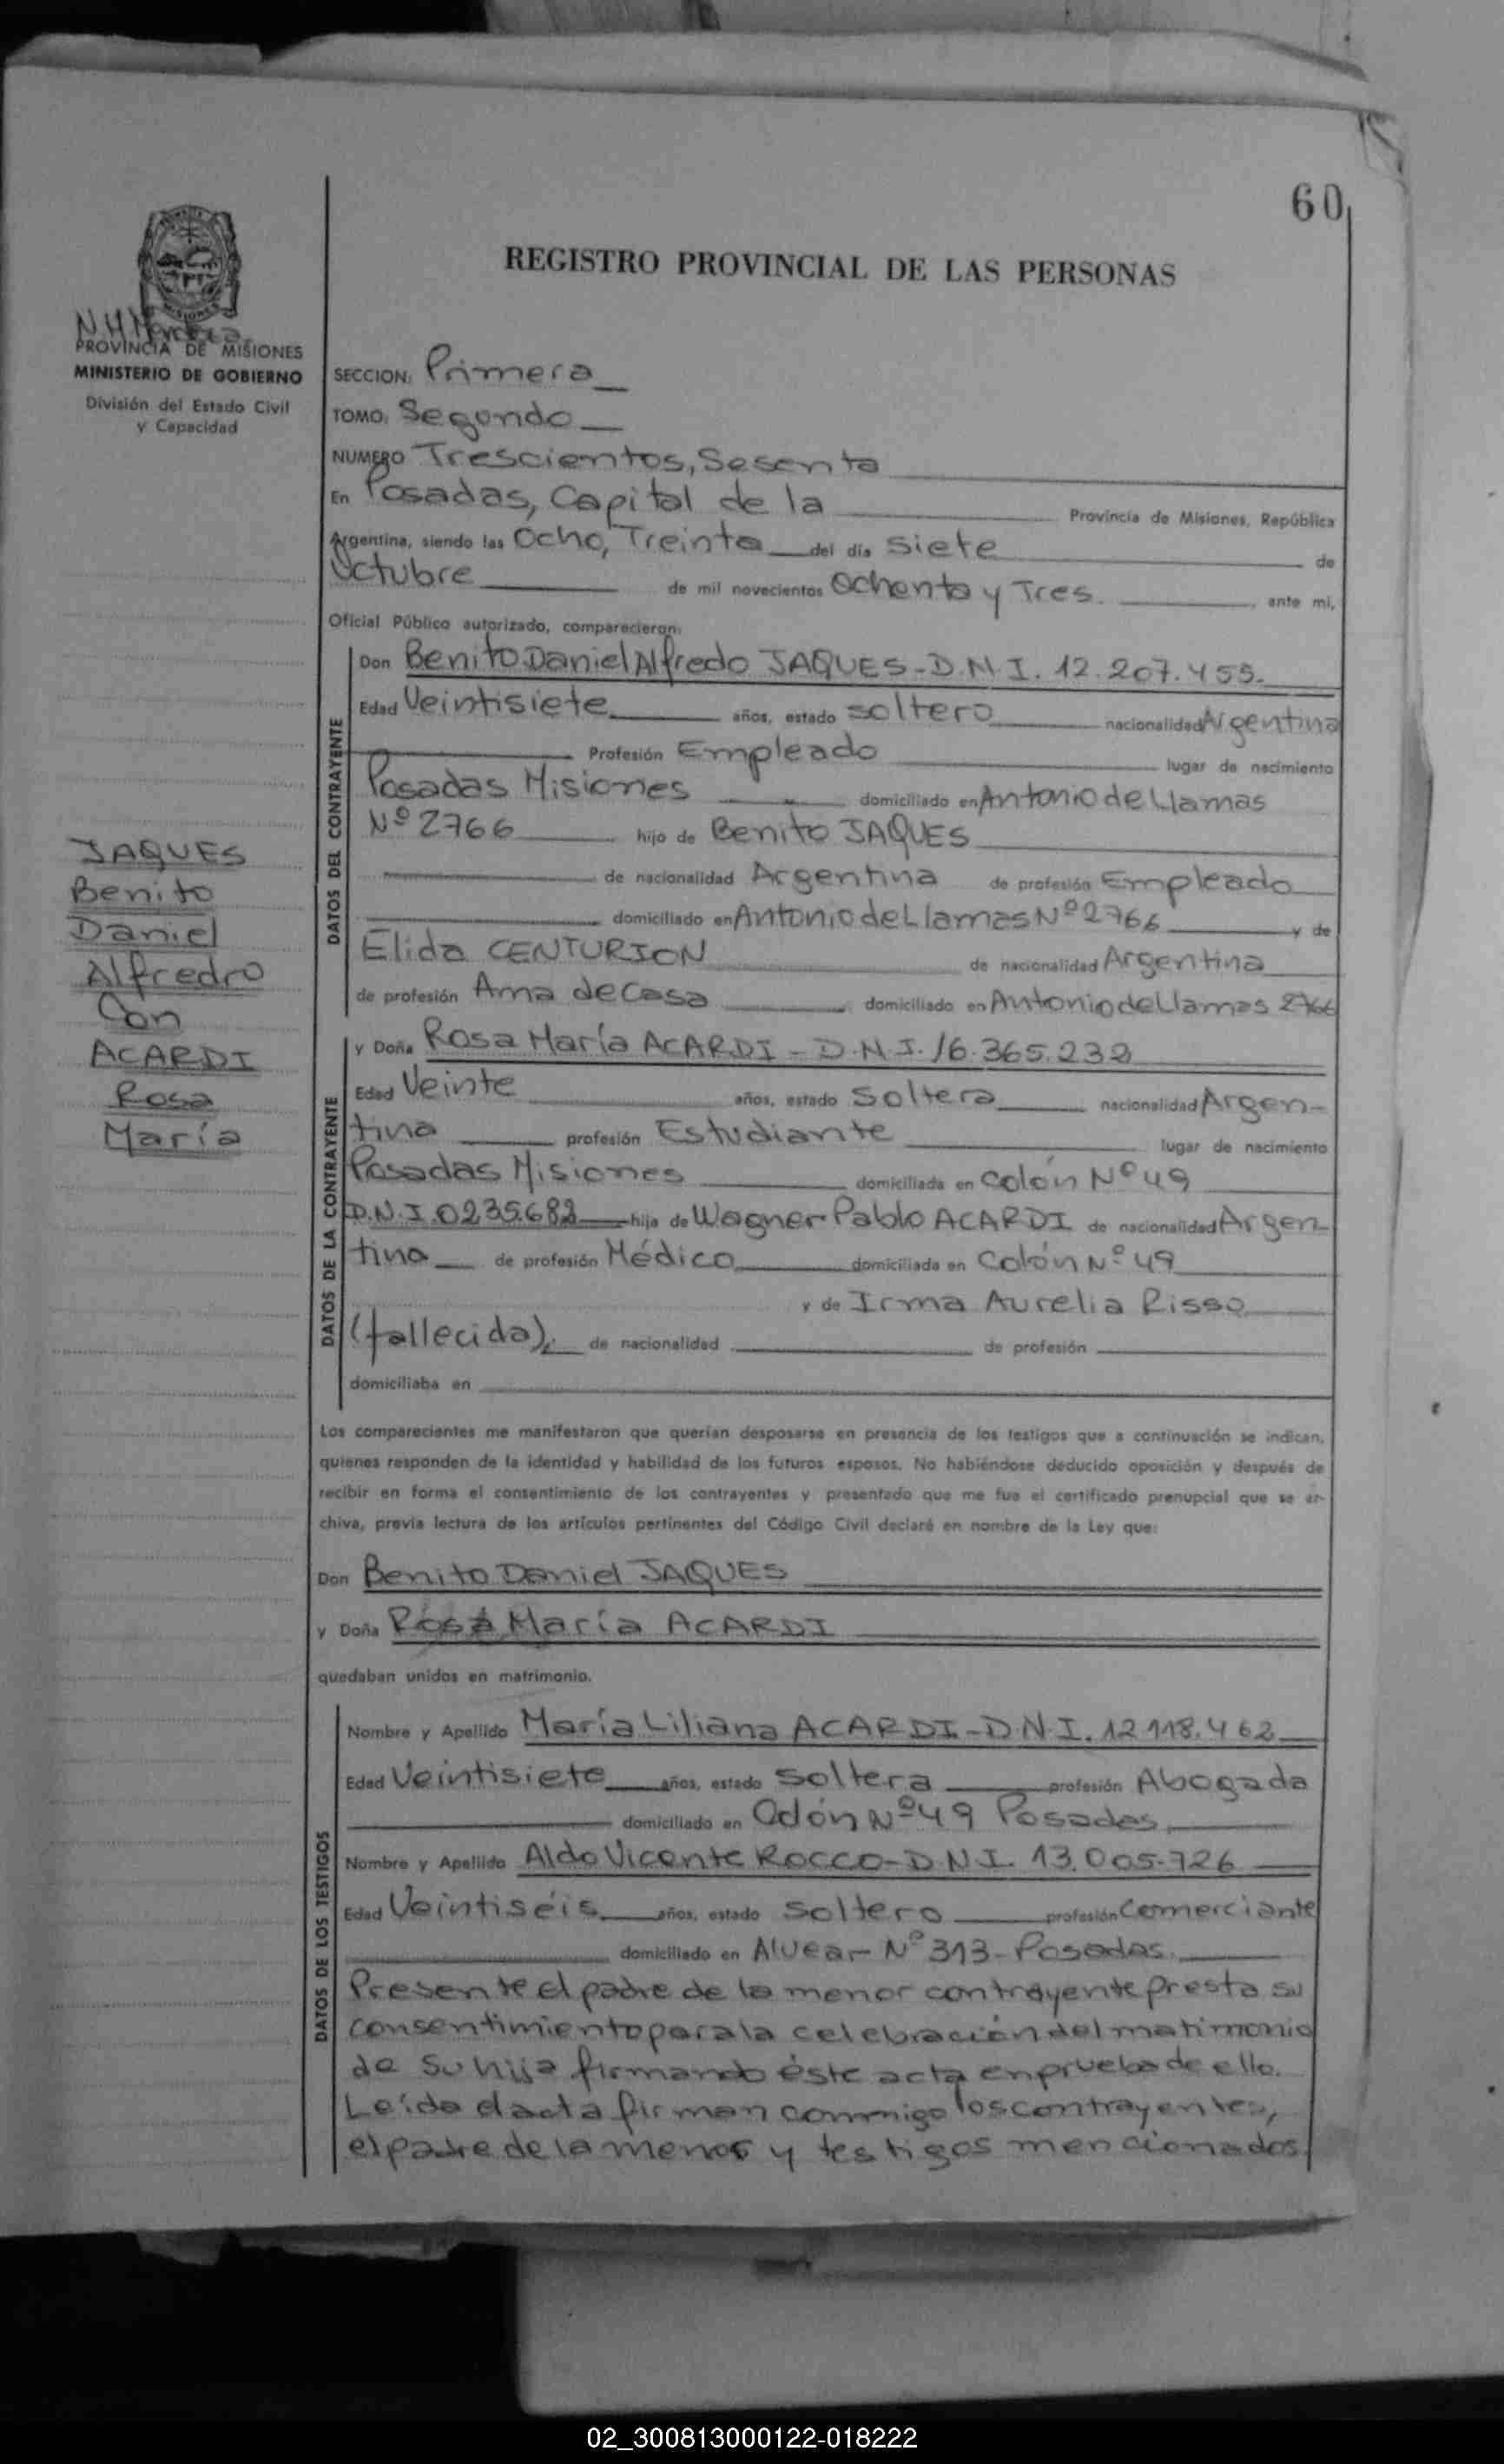 60
REGISTRO PROVINCIAL DE LAS PERSONAS
MISIONES
PROVINCIA DE MISIONES
MINISTERIO DE GOBIERNO
División del Estado Civil
y Capacidad
SECCION: Primera
TOMO: Segundo
NUMERO Trescientos, Sesenta
En Posadas, Capital de la Provincia de Misiones, República
Argentina, siendo las Ocho, Treinta del día siete de
Octubre de mil novecientos Ochenta y Tres. ante mi,
Oficial Público autorizado, comparecieron:
DATOS DEL CONTRAYENTE
Don Benito Daniel Alfredo JAQUES - D.N.I. 12.207.455.
Edad Veintisiete años, estado soltero nacionalidad Argentina
Profesión Empleado lugar de nacimiento
Posadas Misiones domiciliado en Antonio de Llamas
Nº 2766 hijo de Benito JAQUES
de nacionalidad Argentina de profesión Empleado
domiciliado en Antonio de Llamas Nº 2766 y de
Elida CENTURION de nacionalidad Argentina
de profesión Ama de casa domiciliado en Antonio de Llamas 2766
JAQUES
Benito
Daniel
Alfredro
Con
ACARDI
Rosa
María
DATOS DE LA CONTRAYENTE
y Doña Rosa María ACARDI - D.N.I. 16.365.232
Edad Veinte años, estado Soltera nacionalidad Argen-
tina profesión Estudiante lugar de nacimiento
Posadas Misiones domiciliada en Colón Nº 49
D.N.I. 0235682 hija de Wagner Pablo ACARDI de nacionalidad Argen-
tina de profesión Médico domiciliada en Colón Nº 49
y de Irma Aurelia Risso
(fallecida), de nacionalidad de profesión
domiciliaba en
Los comparecientes me manifestaron que querían desposarse en presencia de los testigos que a continuación se indican,
quienes responden de la identidad y habilidad de los futuros esposos. No habiéndose deducido oposición y después de
recibir en forma el consentimiento de los contrayentes y presentado que me fue el certificado prenupcial que se ar-
chiva, previa lectura de los artículos pertinentes del Código Civil declaré en nombre de la Ley que:
Don Benito Daniel JAQUES
y Doña Rosa María ACARDI
quedaban unidos en matrimonio.
DATOS DE LOS TESTIGOS
Nombre y Apellido María Liliana ACARDI - D.N.I. 12 118.462
Edad Veintisiete años, estado soltera profesión Abogada
domiciliado en Colón Nº 49 Posadas
Nombre y Apellido Aldo Vicente ROCCO - D.N.I. 13.005.726
Edad Veintiséis años, estado soltero profesión Comerciante
domiciliado en Alvear Nº 313 - Posadas.
Presente el padre de la menor contrayente presta su
consentimiento para la celebración del matrimonio
de su hija firmando éste acta en prueba de ello.
Leída el acta firman conmigo los contrayentes,
el padre de la menor y testigos mencionados.
02_300813000122-018222